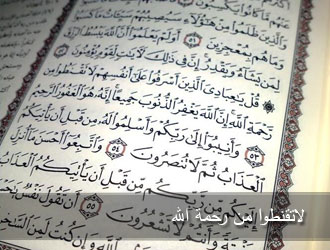 عَنْهُم مَّا كَانُوا۟ يَكْسِبُونَ
وَٱلَّذِينَ ظَلَمُوا۟ مِنْ هَـٰٓؤُلَآءِ سَيُصِيبُهُمْ سَيِّـَٔاتُ مَا كَسَبُوا۟
وَمَا هُم بِمُعْجِزِينَ ٥١ أَوَلَمْ يَعْلَمُوٓا۟ أَنَّ ٱللَّهَ يَبْسُطُ ٱلرِّزْقَ
لِمَن يَشَآءُ وَيَقْدِرُ إِنَّ فِى ذَٰلِكَ لَـَٔايَـٰتٍ لِّقَوْمٍ يُؤْمِنُونَ
۞ قُلْ يَـٰعِبَادِىَ ٱلَّذِينَ أَسْرَفُوا۟ عَلَىٰٓ أَنفُسِهِمْ لَا تَقْنَطُوا۟ مِن
رَّحْمَةِ ٱللَّهِ إِنَّ ٱللَّهَ يَغْفِرُ ٱلذُّنُوبَ جَمِيعًا إِنَّهُۥ هُوَ ٱلْغَفُورُ ٱلرَّحِيمُ
٥٣ وَأَنِيبُوٓا۟ إِلَىٰ رَبِّكُمْ وَأَسْلِمُوا۟ لَهُۥ مِن قَبْلِ أَن يَأْتِيَكُمُ
ٱلْعَذَابُ ثُمَّ لَا تُنصَرُونَ ٥٤ وَٱتَّبِعُوٓا۟ أَحْسَنَ مَآ أُنزِلَ
إِلَيْكُم مِّن رَّبِّكُم مِّن قَبْلِ أَن يَأْتِيَكُمُ ٱلْعَذَابُ
بَغْتَةً وَأَنتُمْ لَا تَشْعُرُونَ ٥٥ أَن تَقُولَ نَفْسٌ
ٱللَّهِ وَإِن كُنتُ لَمِنَ ٱلسَّـٰخِرِينَ
لاتقنطوا من رحمة الله